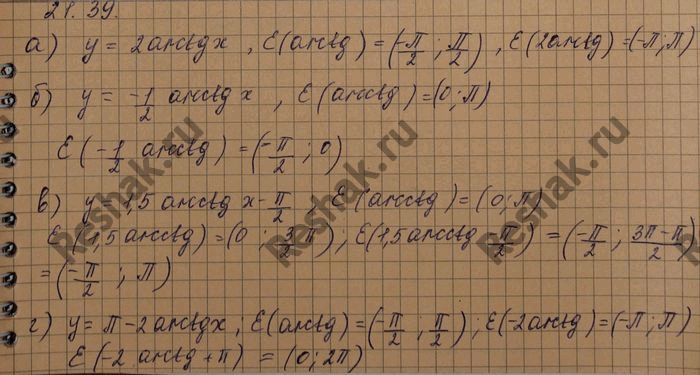 21.39.
а) y = 2arctgx , E(arctg) = (-π/2 ; π/2) , E(2arctg) = (-π; π)
б) y = -1/2 arcctg x , E(arcctg) = (0; π)
E(-1/2 arcctg) = (-π/2 ; 0)
в) y = 1,5 arcctg x - π/2 E(arcctg) = (0; π)
E(1,5arcctg) = (0 ; 3/2 π) ; E(1,5arcctg - π/2) = (-π/2 ; 3π-π/2)
= (-π/2 ; π)
г) y = π - 2arctgx ; E(arctg) = (-π/2 ; π/2) ; E(-2arctg) = (-π; π)
E(-2 arctg + π) = (0; 2π)
Reshak.ru
Reshak.ru
Reshak.ru